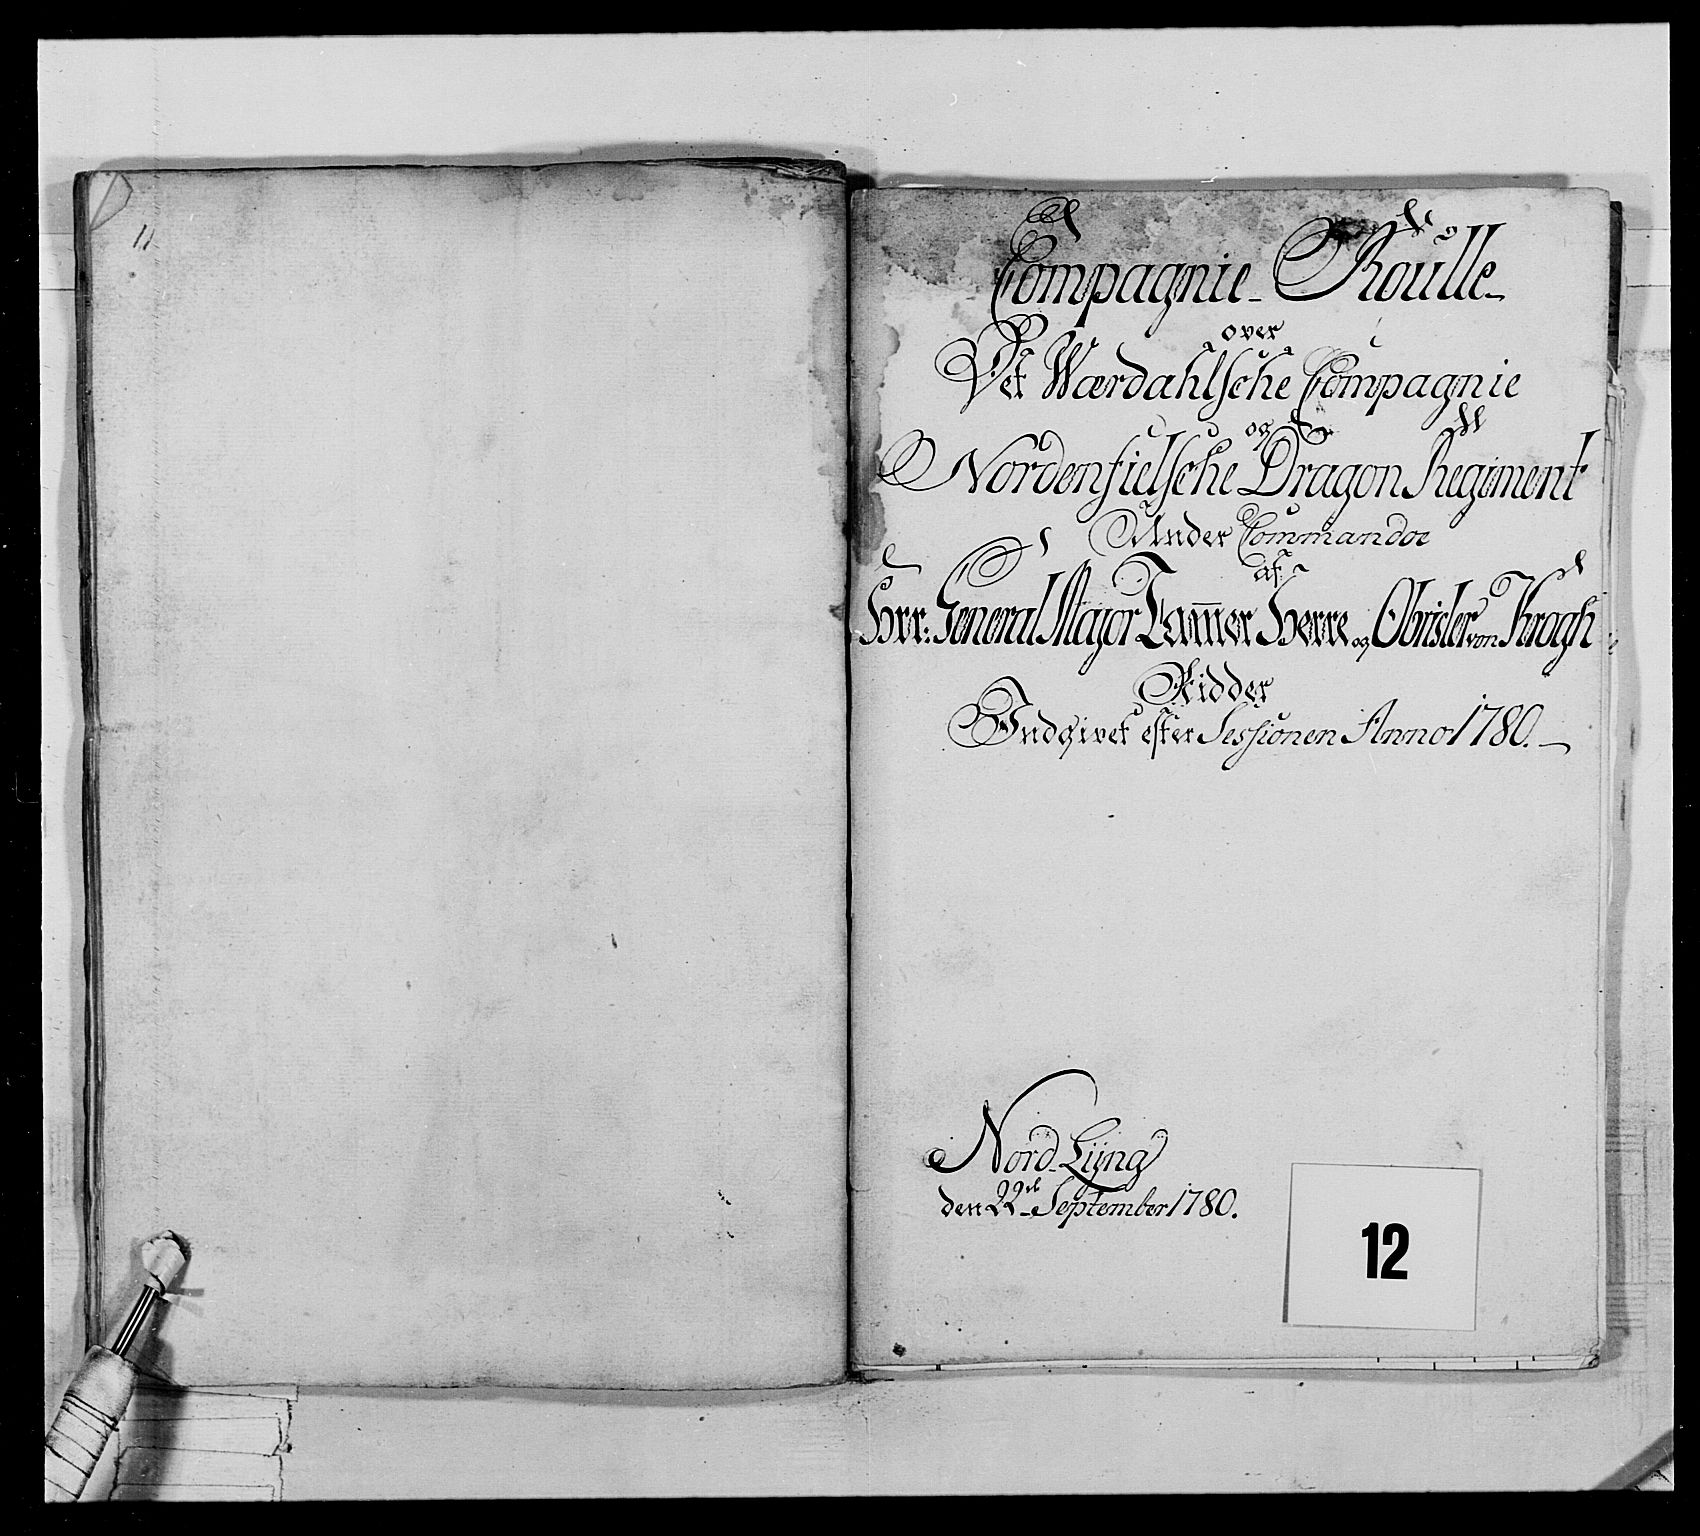 11
Compagnie Roulle
over
Det Wærdahlsche Compagnie
og
Nordenfielsche Dragon Regiment
Under Commandoe
af
Hrr: General Major Cam̅er Herre og Obrister von Krogh
Ridder
Indgivet efter Sessionen Anno 1780.
Nord Lÿng
den 22de September 1780.
12